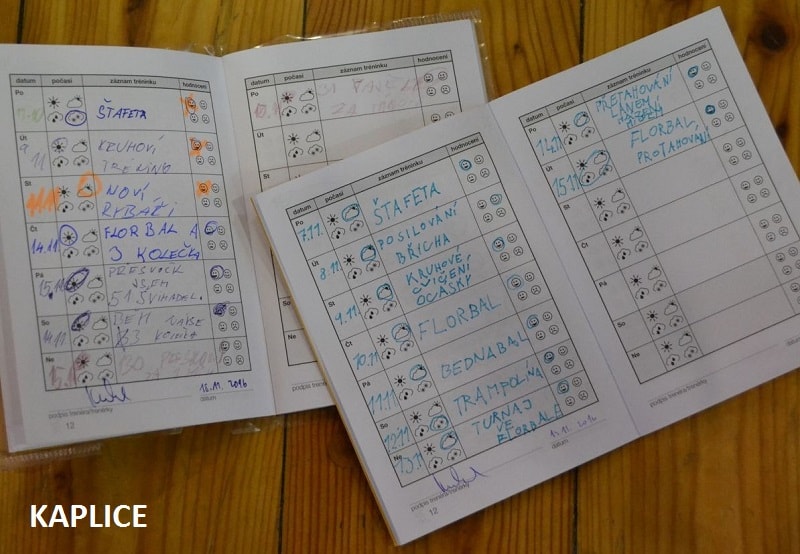 datum počasí záznam tréninku hodnocení
Po
ŠTAFETA
Út
9.
11
KRUHOVÍ
TRÉNING
St
11.11
NOVÍ
RYBÁŘI
Čt
14.11
FLORBAL A
3 KOLEČKA
Pá
15.11
51. ŠVIHADEL.
So
14.11
Ne
15.11
16.11.2016
podpis trenéra/trenérky datum
12
datum počasí záznam tréninku hodnocení
Po
Út
St
Čt
Pá
So
Ne
datum počasí záznam tréninku hodnocení
Po
7.11.
ŠTAFETA
Út
8.11.
POSILOVÁNÍ
BŘICHA
St
9.11.
KRUHOVÉ
CVIČENÍ
OCÁSKY
Čt
10.11.
FLORBAL
Pá
11.11.
BEDNABAL
So
12.11.
TRAMPOLÍNA
Ne
13.11.
TURNAJ
VE
FLORBALE
podpis trenéra/trenérky datum
12
datum počasí záznam tréninku hodnocení
Po
14.11
PŘETAHOVÁNÍ
LANEM
Út
15.11
FLORBAL
PROTAHOVÁNÍ
St
Čt
Pá
So
Ne
podpis trenéra/trenérky
KAPLICE